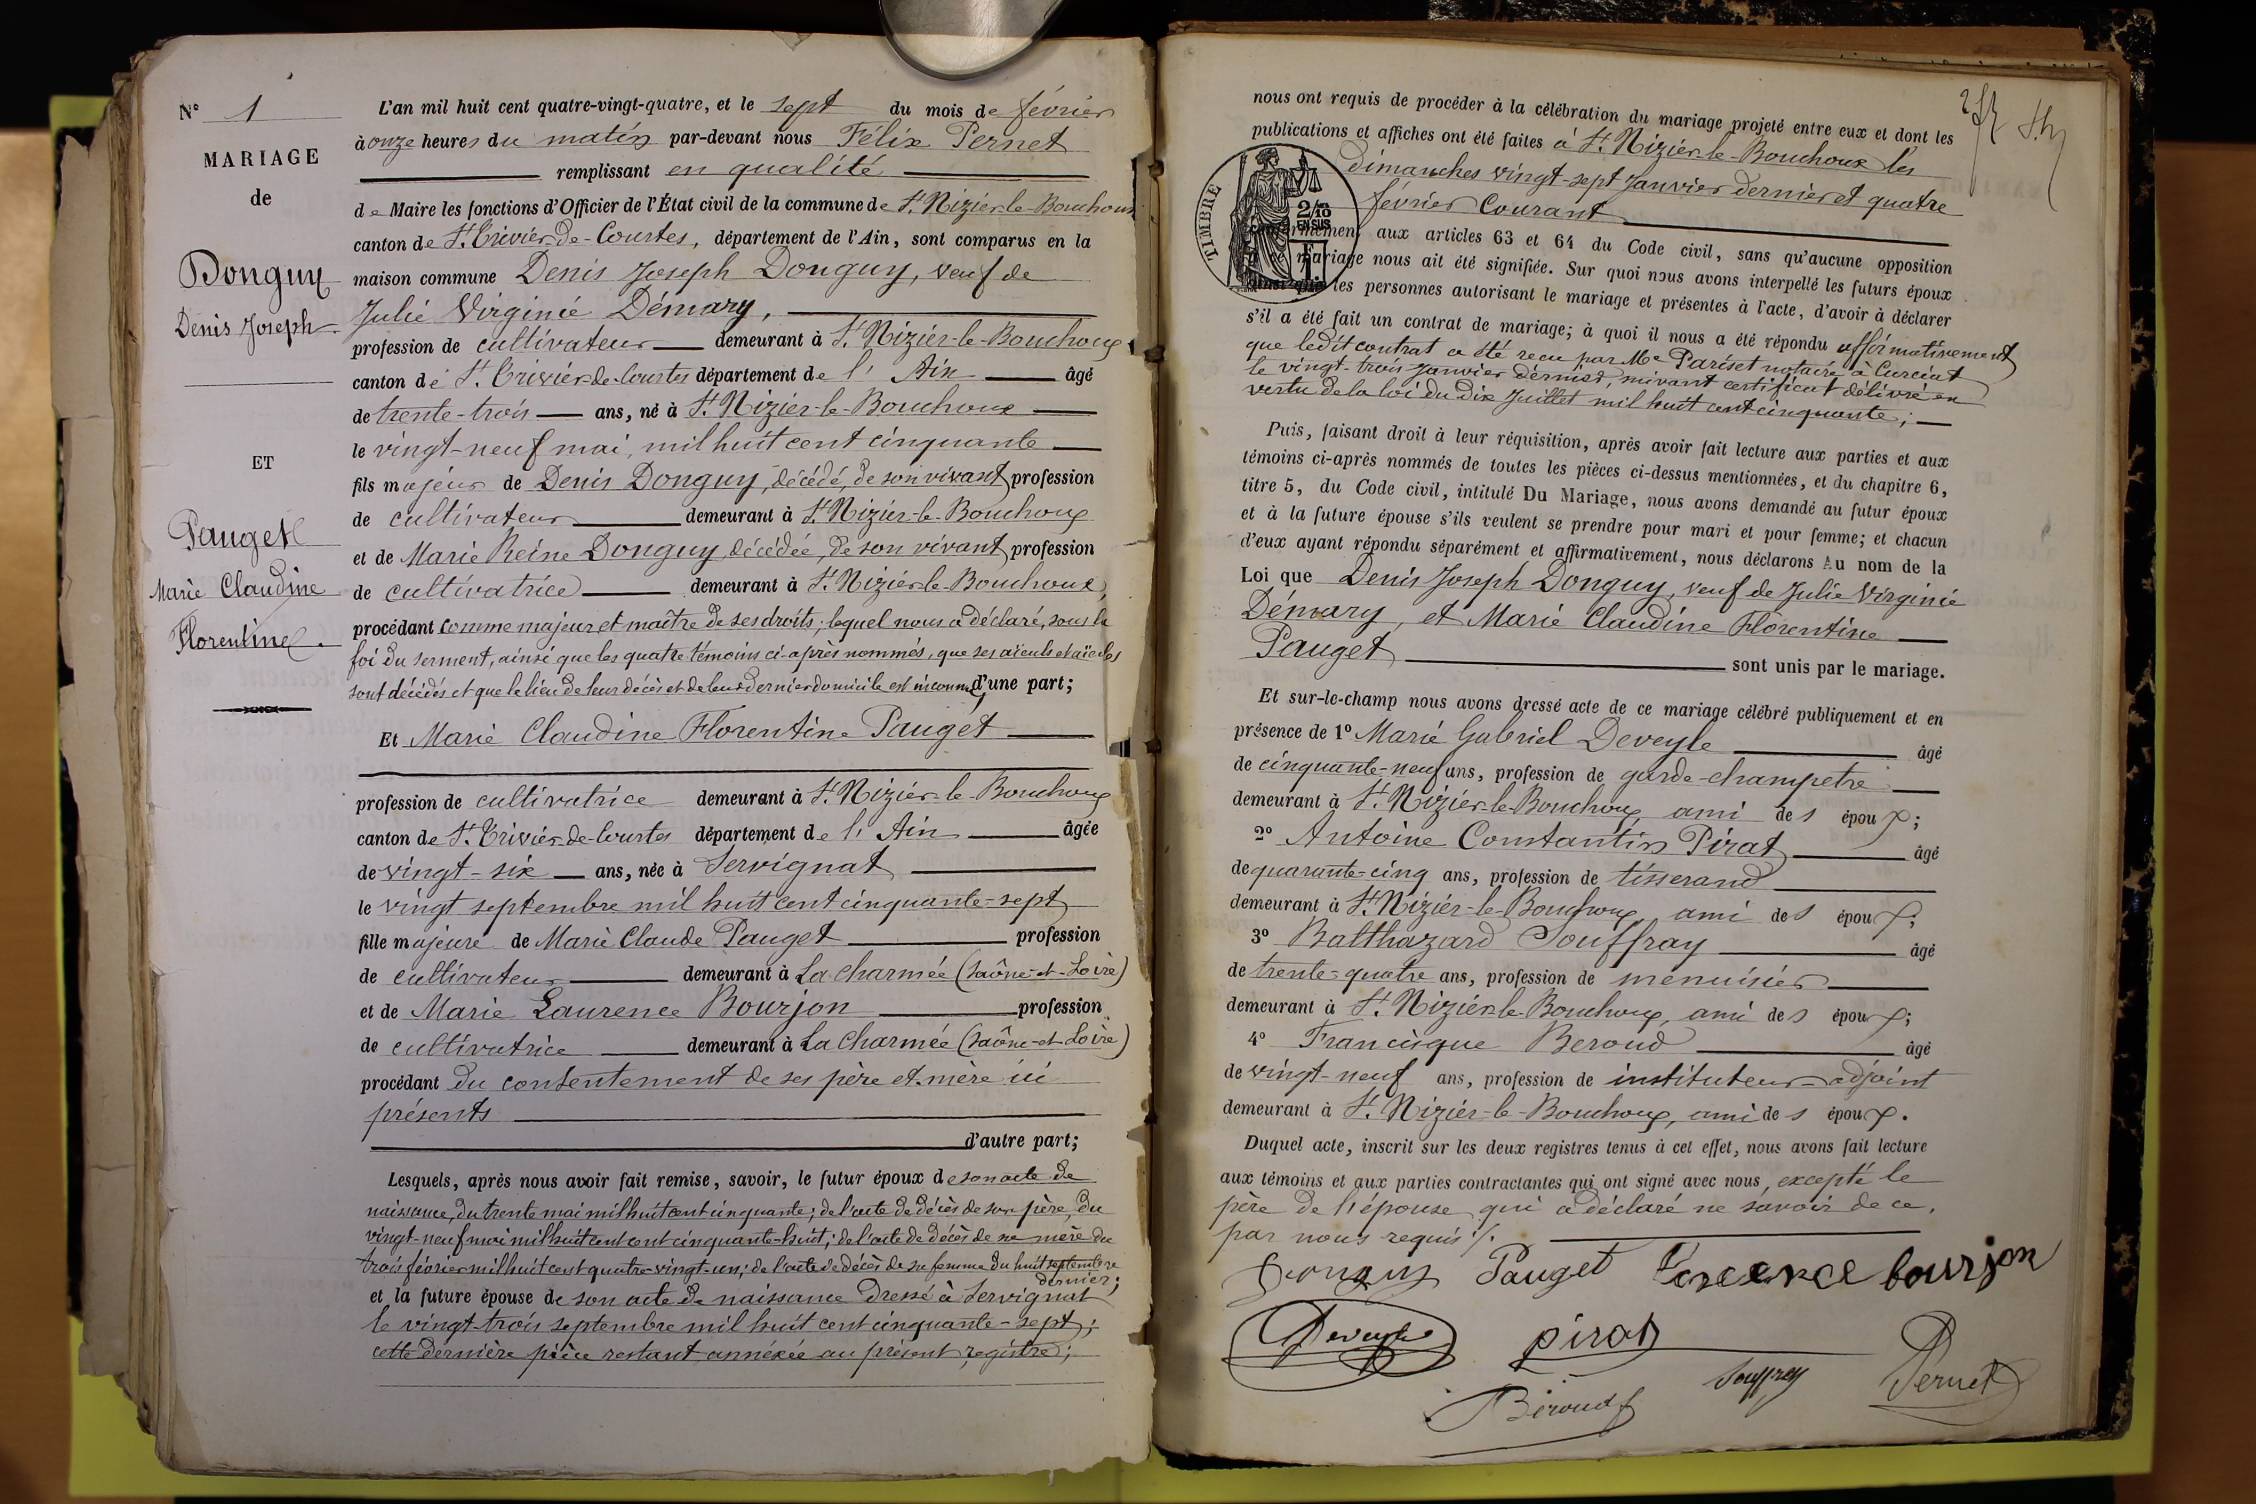 N° 1
MARIAGE
de
Donguy
Denis Joseph
ET
Pauget
Marie Claudine
Florentine.
L'an mil huit cent quatre-vingt-quatre, et le sept du mois de février
à onze heures du matin par-devant nous Félix Pernet
remplissant en qualité
de Maire les fonctions d'Officier de l'État civil de la commune de St Nizier-le-Bouchoux
canton de St Trivier-de-Courtes, département de l'Ain, sont comparus en la
maison commune Denis Joseph Donguy, veuf de
Julie Virginie Démary,
profession de cultivateur demeurant à St Nizier-le-Bouchoux
canton de St Trivier-de-Courtes département de l'Ain âgé
de trente-trois ans, né à St Nizier-le-Bouchoux
le vingt-neuf mai, mil huit cent cinquante
fils majeur de Denis Donguy, décédé, de son vivant profession
de cultivateur demeurant à St Nizier-le-Bouchoux
et de Marie Reine Donguy, décédée, de son vivant profession
de cultivatrice demeurant à St Nizier-le-Bouchoux,
procédant comme majeur et maître de ses droits; lequel nous a déclaré, sous la
foi du serment, ainsi que les quatre témoins ci-après nommés, que ses aïeuls et aïeules
sont décédés et que le lieu de leur décès et de leur dernier domicile est inconnu, d'une part;
Et Marie Claudine Florentine Pauget
profession de cultivatrice demeurant à St Nizier-le-Bouchoux
canton de St Trivier-de-Courtes département de l'Ain âgée
de vingt-six ans, née à Servignat
le vingt septembre mil huit cent cinquante-sept
fille majeure de Marie Claude Pauget profession
de cultivateur demeurant à La Charmée (Saône-et-Loire)
et de Marie Laurence Bourjon profession
de cultivatrice demeurant à La Charmée (Saône-et-Loire)
procédant du contentement de ses père et mère ici
présents
d'autre part;
Lesquels, après nous avoir fait remise, savoir, le futur époux de son acte de
naissance, du trente mai mil huit cent cinquante; de l'acte de décès de son père, du
vingt-neuf mai mil huit cent cent cinquante-huit; de l'acte de décès de sa mère du
trois février mil huit cent quatre-vingt-un; de l'acte de décès de sa femme du huit septembre
dernier;
et la future épouse de son acte de naissance dressé à Servignat
le vingt-trois septembre mil huit cent cinquante-sept;
cette dernière pièce restant annexée au présent registre;
nous ont requis de procéder à la célébration du mariage projeté entre eux et dont les
publications et affiches ont été faites à St Nizier-le-Bouchoux les
dimanches vingt-sept janvier dernier et quatre
février courant
TIMBRE
2/10
EN SUS
aux articles 63 et 64 du Code civil, sans qu'aucune opposition
mariage nous ait été signifiée. Sur quoi nous avons interpellé les futurs époux
ainsi que les personnes autorisant le mariage et présentes à l'acte, d'avoir à déclarer
s'il a été fait un contrat de mariage; à quoi il nous a été répondu affirmativement
que ledit contrat a été reçu par Me Pariset notaire à Curciat
le vingt-trois janvier dernier, suivant certificat délivré en
vertu de la loi du dix juillet mil huit cent cinquante;
Puis, faisant droit à leur réquisition, après avoir fait lecture aux parties et aux
témoins ci-après nommés de toutes les pièces ci-dessus mentionnées, et du chapitre 6,
titre 5, du Code civil, intitulé Du Mariage, nous avons demandé au futur époux
et à la future épouse s'ils veulent se prendre pour mari et pour femme; et chacun
d'eux ayant répondu séparément et affirmativement, nous déclarons Au nom de la
Loi que Denis Joseph Donguy, veuf de Julie Virginie
Démary, et Marie Claudine Florentine
Pauget sont unis par le mariage.
Et sur-le-champ nous avons dressé acte de ce mariage célébré publiquement et en
présence de 1° Marie Gabriel Deveyle âgé
de cinquante-neuf ans, profession de garde-champetre
demeurant à St Nizier-le-Bouchoux, ami des époux;
2° Antoine Constantin Pirat âgé
de quarante-cinq ans, profession de tisserand
demeurant à St Nizier-le-Bouchoux, ami des époux;
3° Balthazard Souffray âgé
de trente-quatre ans, profession de menuisier
demeurant à St Nizier-le-Bouchoux, ami des époux;
4° Francisque Beroud âgé
de vingt-neuf ans, profession de instituteur-adjoint
demeurant à St Nizier-le-Bouchoux, ami des époux.
Duquel acte, inscrit sur les deux registres tenus à cet effet, nous avons fait lecture
aux témoins et aux parties contractantes qui ont signé avec nous, excepté le
père de l'épouse qui a déclaré ne savoir de ce,
par nous requis ./.
Donguy Pauget Lorence bourjon
Deveyle pirat
Souffray Pernet
Béroud